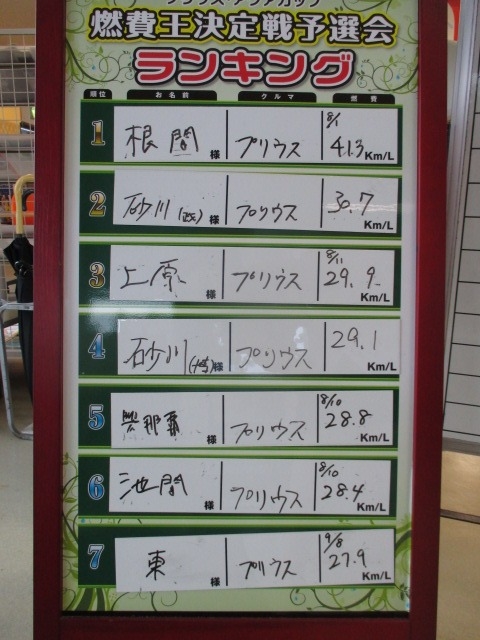 プリウス・アクアカップ
燃費王決定戦予選会
ランキング
順位 お名前 クルマ 燃費
1 根間 様 プリウス 8/1 41.3 Km/L
2 砂川 様 プリウス 30.7 Km/L
3 上原 様 プリウス 8/11 29.9 Km/L
4 砂川 様 プリウス 29.1 Km/L
5 與那覇 様 プリウス 8/10 28.8 Km/L
6 池間 様 プリウス 8/10 28.4 Km/L
7 東 様 プリウス 9/8 27.9 Km/L